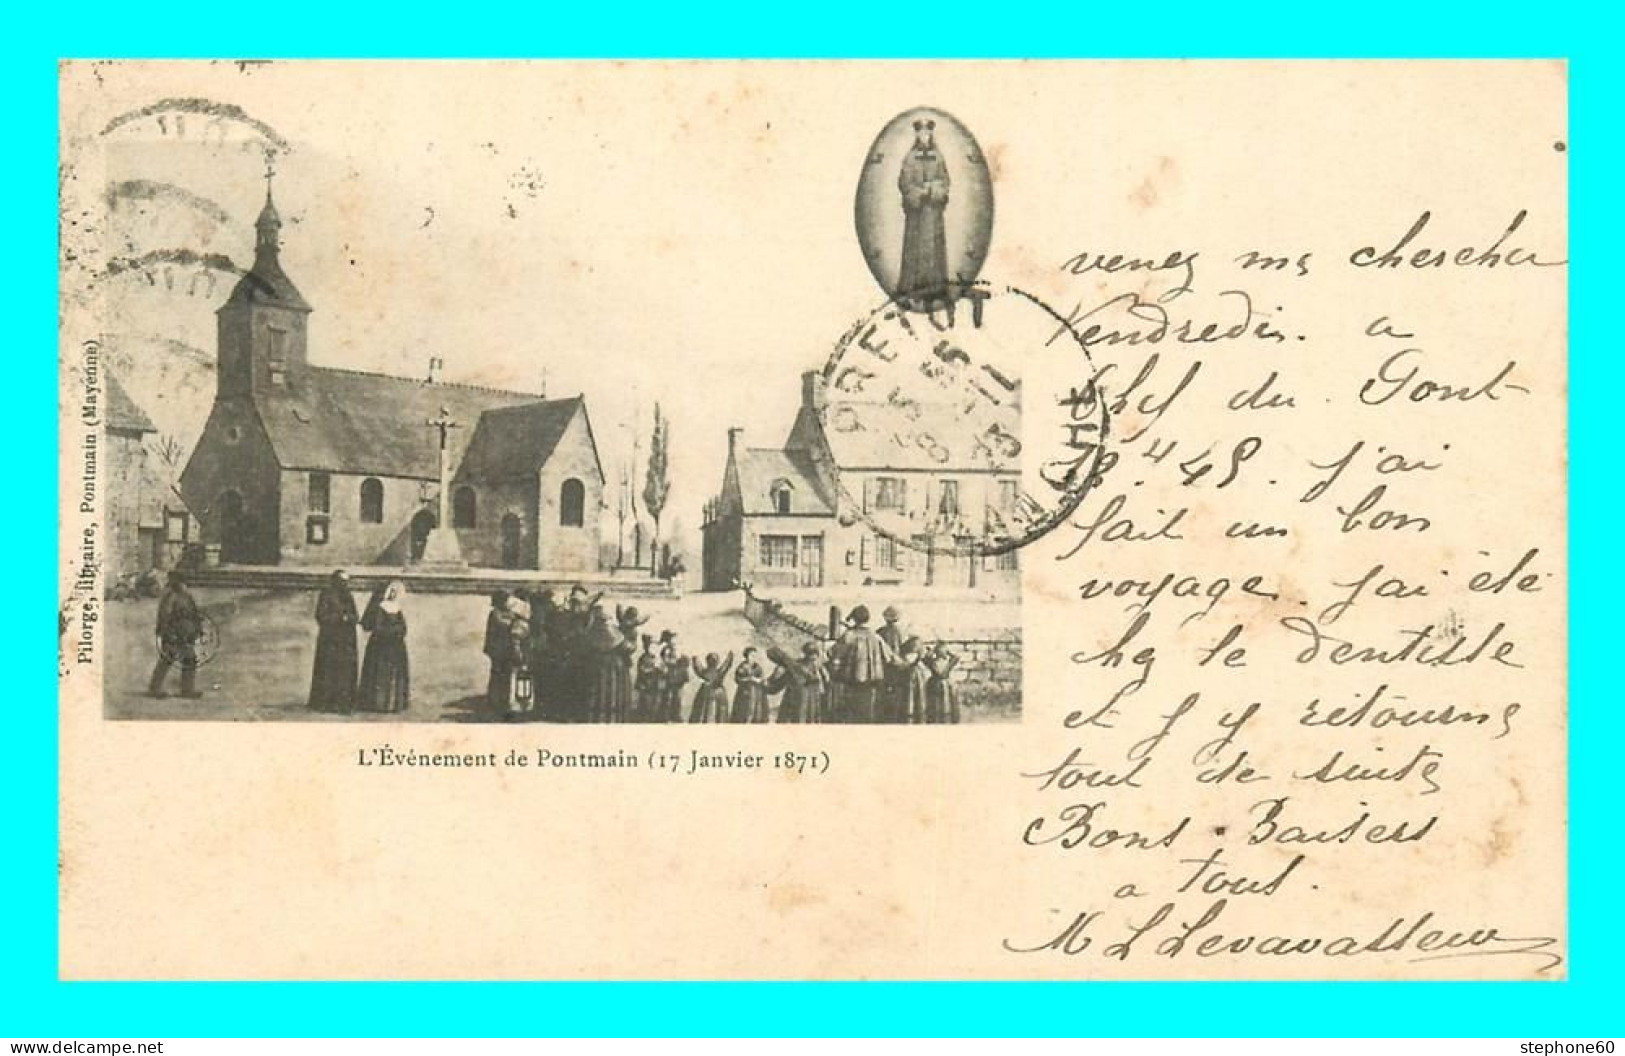 Pilorge, libraire, Pontmain (Mayenne)
L'Événement de Pontmain (17 Janvier 1871)
BRETOT
MANCHE
venez me chercher
Vendredi. a
chef du Pont
2.H 45. j'ai
fait un bon
voyage. j'ai été
chez le dentiste
et j y retourne
tout de suite
Bons. Baisers
a tous.
M L Levavasseur
www.delcampe.net
stephone60